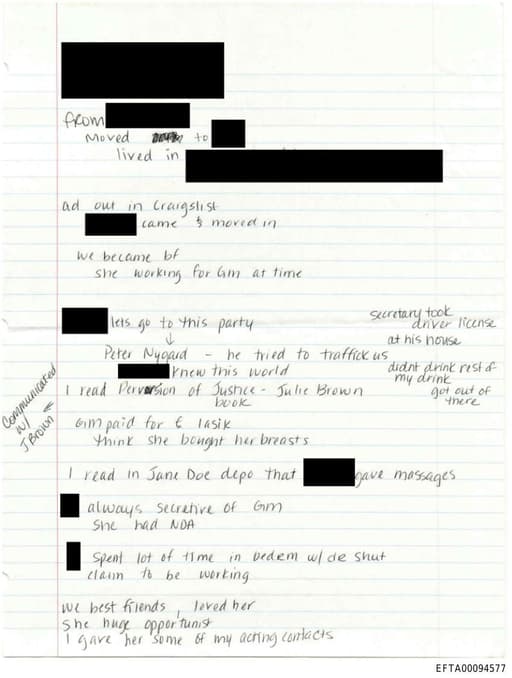 from
moved to
lived in
ad out in Craigslist
came & moved in
we became bf
she working for Gm at time
lets go to this party
secretary took
driver license
at his house
↓
Peter Nygard - he tried to traffick us
knew this world
didnt drink rest of
my drink
got out of
there
I read Perversion of Justice - Julie Brown
book
Communicated
w/
J Brown
Gm paid for & lasik
think she bought her breasts
I read in Jane Doe depo that gave massages
always secretive of Gm
she had NDA
spent lot of time in w/ shut
claim to be working
we best friends, loved her
she huge opportunist
I gave her some of my acting contacts
EFTA00094577